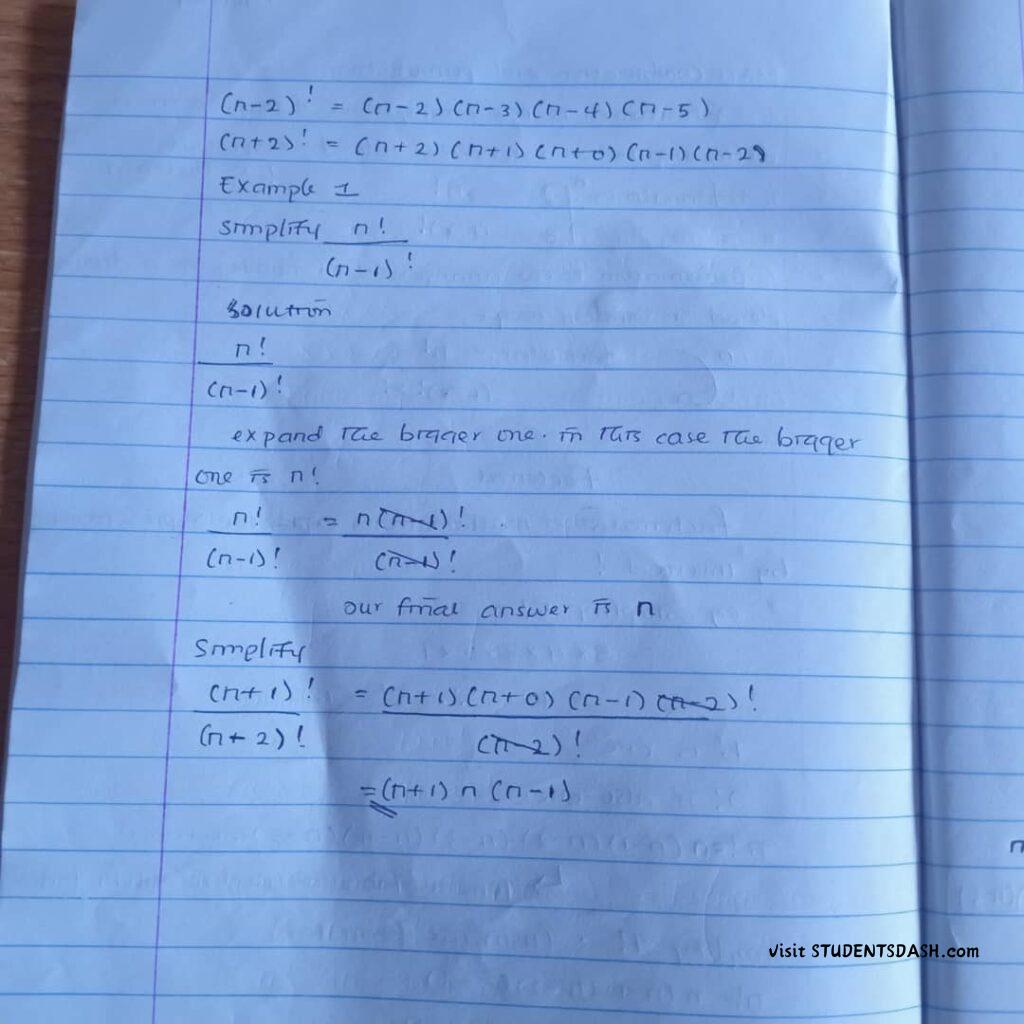 (n-2)! = (n-2)(n-3)(n-4)(n-5)
(n+2)! = (n+2)(n+1)(n+0)(n-1)(n-2)
Example 1
Simplify n!
(n-1)!
Solution
n!
(n-1)!
expand the bigger one. in this case the bigger
one is n!
n! = n(n-1)!
(n-1)! (n-1)!
our final answer is n
Simplify
(n+1)! = (n+1).(n+0)(n-1)(n-2)!
(n+2)! (n-2)!
=(n+1)n(n-1)
n
visit STUDENTSDASH.com